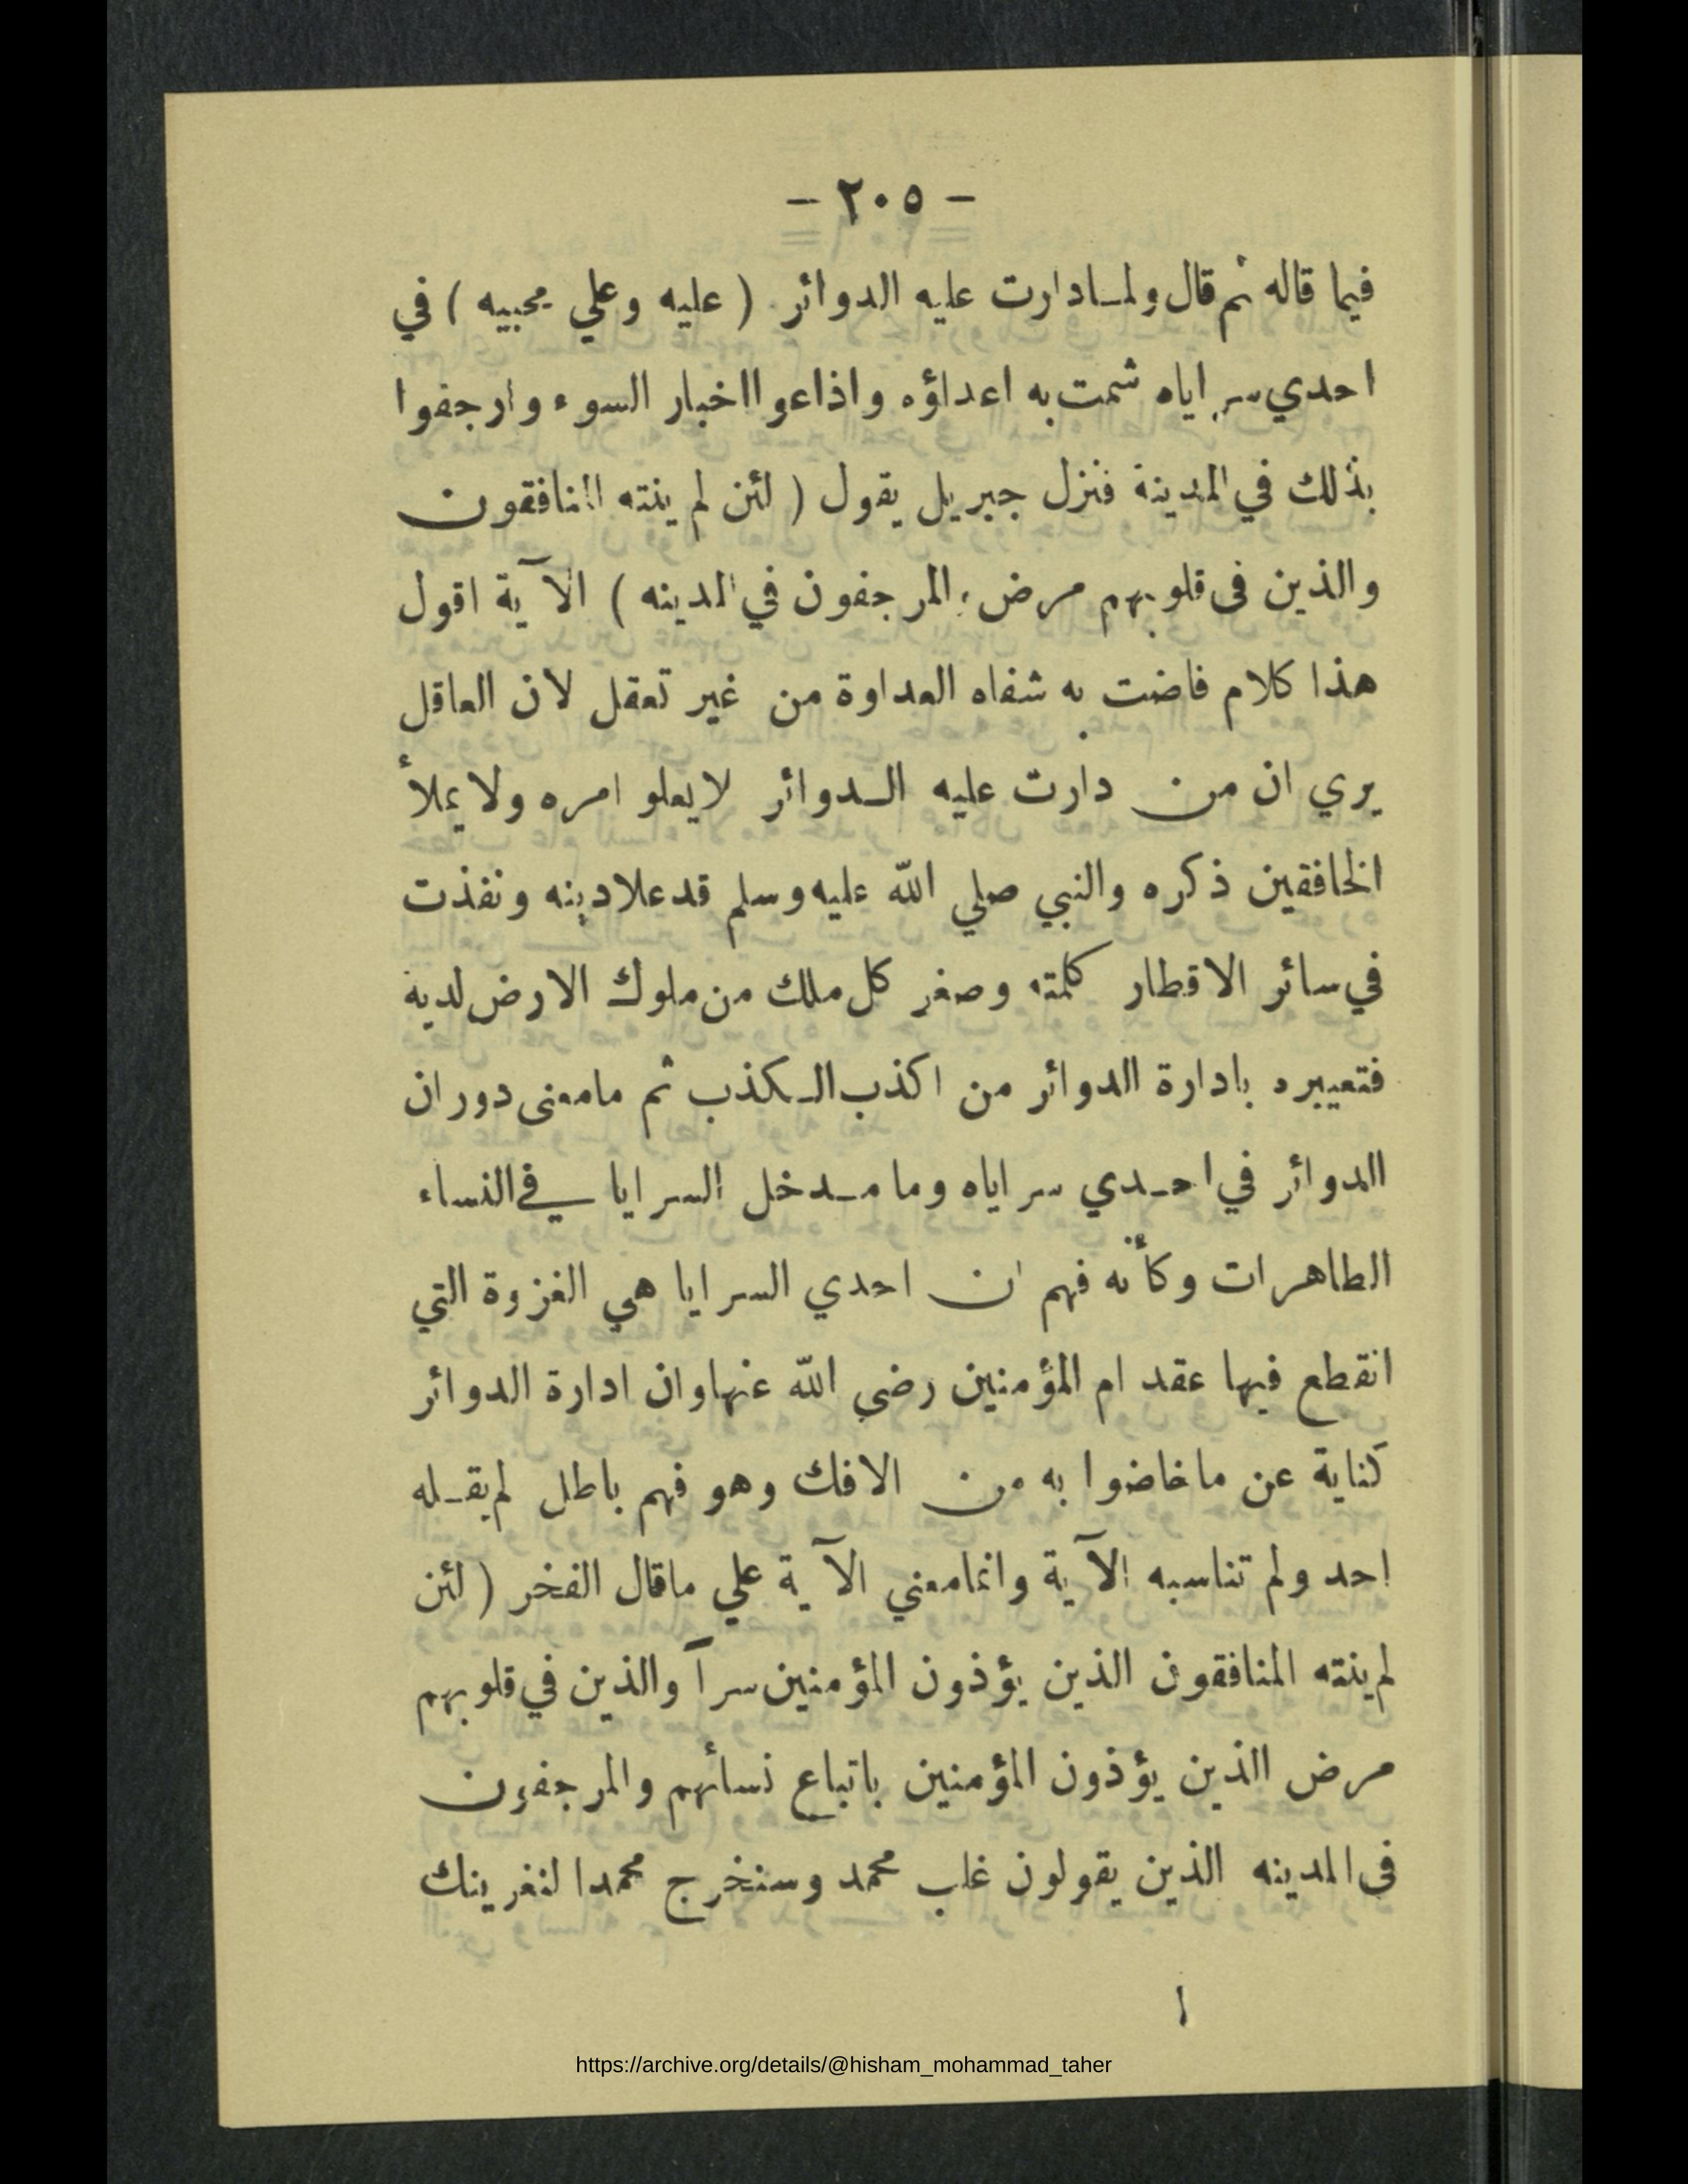 - ٢٠٥ -
فيما قاله ثم قال ولما دارت عليه الدوائر ( عليه وعلي محبيه ) في
احدي سراياه شمت به اعداؤه واذاعوا اخبار السوء وارجفوا
بذلك في المدينة فنزل جبريل يقول ( لئن لم ينته المنافقون
والذين في قلوبهم مرض والمرجفون في المدينه ) الآية اقول
هذا كلام فاضت به شفاه العداوة من غير تعقل لان العاقل
يري ان من دارت عليه الدوائر لا يعلو امره ولا يملأ
الخافقين ذكره والنبي صلي الله عليه وسلم قد علا دينه ونفذت
في سائر الاقطار كلمته وصغر كل ملك من ملوك الارض لديه
فتعييره بادارة الدوائر من اكذب الكذب ثم ما معنى دوران
الدوائر في احدي سراياه وما مدخل السرايا في النساء
الطاهرات وكأنه فهم ان احدي السرايا هي الغزوة التي
انقطع فيها عقد ام المؤمنين رضي الله عنها وان ادارة الدوائر
كناية عن ما خاضوا به من الافك وهو فهم باطل لم يقله
احد ولم تناسبه الآية وانما معني الآية علي ما قال الفخر ( لئن
لم ينته المنافقون الذين يؤذون المؤمنين سراً والذين في قلوبهم
مرض الذين يؤذون المؤمنين باتباع نسائهم والمرجفون
في المدينه الذين يقولون غلب محمد وسنخرج محمدا لنغرينك
https://archive.org/details/@hisham_mohammad_taher